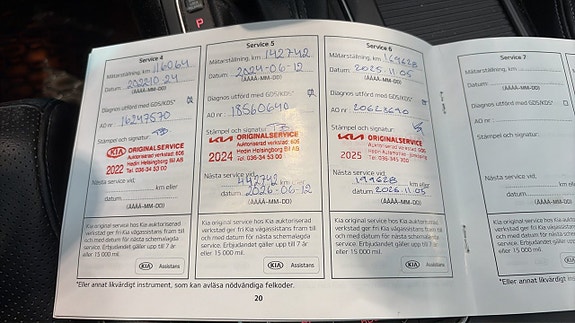 Service 4
Mätarställning, km 116064
Datum 20221024
(ÅÅÅÅ-MM-DD)
Diagnos utförd med GDS/KDS*
AO nr 16247570
Stämpel och signatur
KIA ORIGINALSERVICE
Auktoriserad verkstad: 606
Hedin Helsingborg Bil AB
2022 Tel. 036-34 53 00
Nästa service vid
km eller
datum
(ÅÅÅÅ-MM-DD)
Kia original service hos Kia auktoriserad
verkstad ger fri Kia vägassistans fram till
och med datum för nästa schemalagda
service. Erbjudandet gäller upp till 7 år
eller 15 000 mil.
KIA Assistans
Service 5
Mätarställning, km 142742
Datum 2024-06-12
(ÅÅÅÅ-MM-DD)
Diagnos utförd med GDS/KDS*
AO nr 18560640
Stämpel och signatur
KIA ORIGINALSERVICE
Auktoriserad verkstad: 606
Hedin Helsingborg Bil AB
2024 Tel. 036-34 53 00
Nästa service vid
km eller
datum 2026-06-12
(ÅÅÅÅ-MM-DD)
Kia original service hos Kia auktoriserad
verkstad ger fri Kia vägassistans fram till
och med datum för nästa schemalagda
service. Erbjudandet gäller upp till 7 år
eller 15 000 mil.
KIA Assistans
Service 6
Mätarställning, km 169628
Datum 2025-11-05
(ÅÅÅÅ-MM-DD)
Diagnos utförd med GDS/KDS*
AO nr 20623690
Stämpel och signatur
KIA ORIGINALSERVICE
Auktoriserad verkstad: 606
Hedin Automotive
2025 Tel. 036-34 53 00
Nästa service vid
199628 km eller
datum 2026-11-05
(ÅÅÅÅ-MM-DD)
Kia original service hos Kia auktoriserad
verkstad ger fri Kia vägassistans fram till
och med datum för nästa schemalagda
service. Erbjudandet gäller upp till 7 år
eller 15 000 mil.
KIA Assistans
Service 7
Mätarställning, km
Datum
(ÅÅÅÅ-MM-DD)
Diagnos utförd med GDS/KDS*
AO nr
Stämpel och signatur
Nästa service vid
km eller
datum
(ÅÅÅÅ-MM-DD)
Kia original service hos Kia
verkstad ger fri Kia vägassistans
och med datum för nästa
service. Erbjudandet gäller
eller 15 000 mil.
KIA
*Eller annat likvärdigt instrument, som kan avläsa nödvändiga felkoder.
20
*Eller annat likvärdigt
P